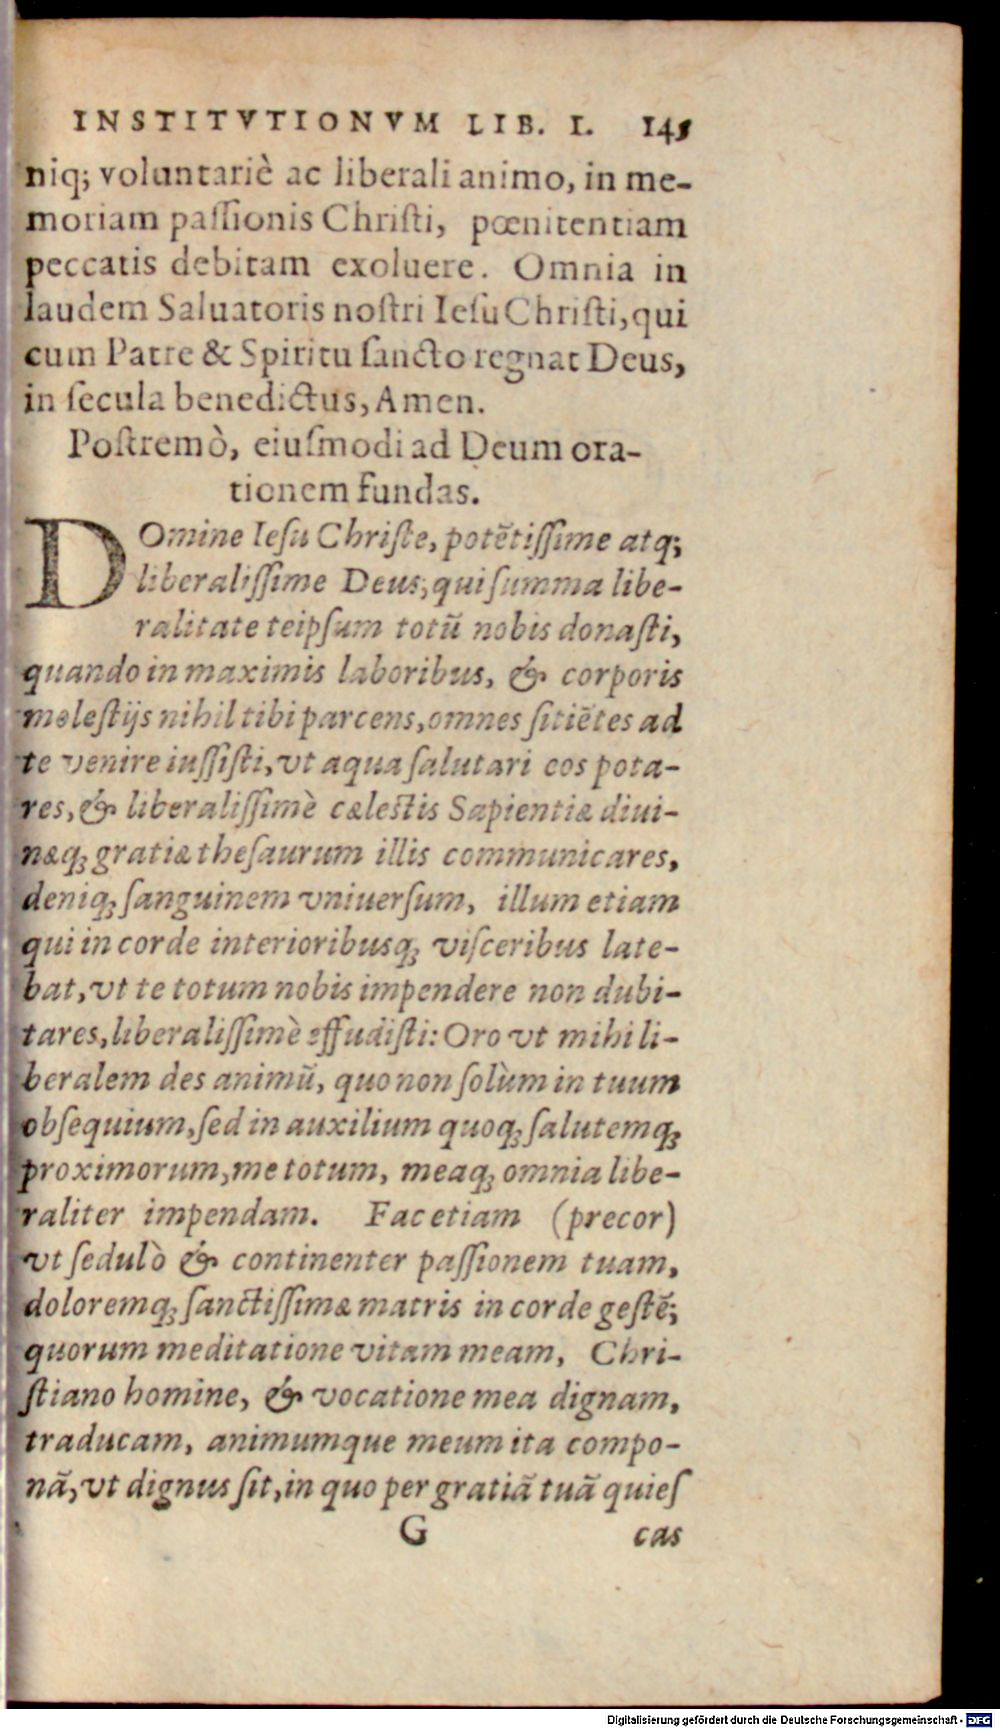 INSTITVTIONVM LIB. I. 145
niq; voluntariè ac liberali animo, in me-
moriam paſſionis Chriſti, pœnitentiam
peccatis debitam exoluere. Omnia in
laudem Saluatoris noſtri Ieſu Chriſti, qui
cum Patre & Spiritu ſancto regnat Deus,
in ſecula benedictus, Amen.
Poſtremò, eiuſmodi ad Deum ora-
tionem fundas.
DOmine Ieſu Chriſte, potẽtiſſime atq;
liberaliſſime Deus, qui ſumma libe-
ralitate teipſum totũ nobis donaſti,
quando in maximis laboribus, & corporis
moleſtijs nihil tibi parcens, omnes ſitiẽtes ad
te venire iuſſiſti, vt aqua ſalutari eos pota-
res, & liberaliſſimè cæleſtis Sapientiæ diui-
næq; gratiæ theſaurum illis communicares,
deniq; ſanguinem vniuerſum, illum etiam
qui in corde interioribusq; viſceribus late-
bat, vt te totum nobis impendere non dubi-
tares, liberaliſſimè effudiſti: Oro vt mihi li-
beralem des animũ, quo non ſolùm in tuum
obſequium, ſed in auxilium quoq; ſalutemq;
proximorum, me totum, meaq; omnia libe-
raliter impendam. Fac etiam (precor)
vt ſedulò & continenter paſſionem tuam,
doloremq; ſanctiſſimæ matris in corde geſtẽ;
quorum meditatione vitam meam, Chri-
ſtiano homine, & vocatione mea dignam,
traducam, animumque meum ita compo-
nã, vt dignus ſit, in quo per gratiã tuã quieſ
G cas
Digitalisierung gefördert durch die Deutsche Forschungsgemeinschaft - DFG